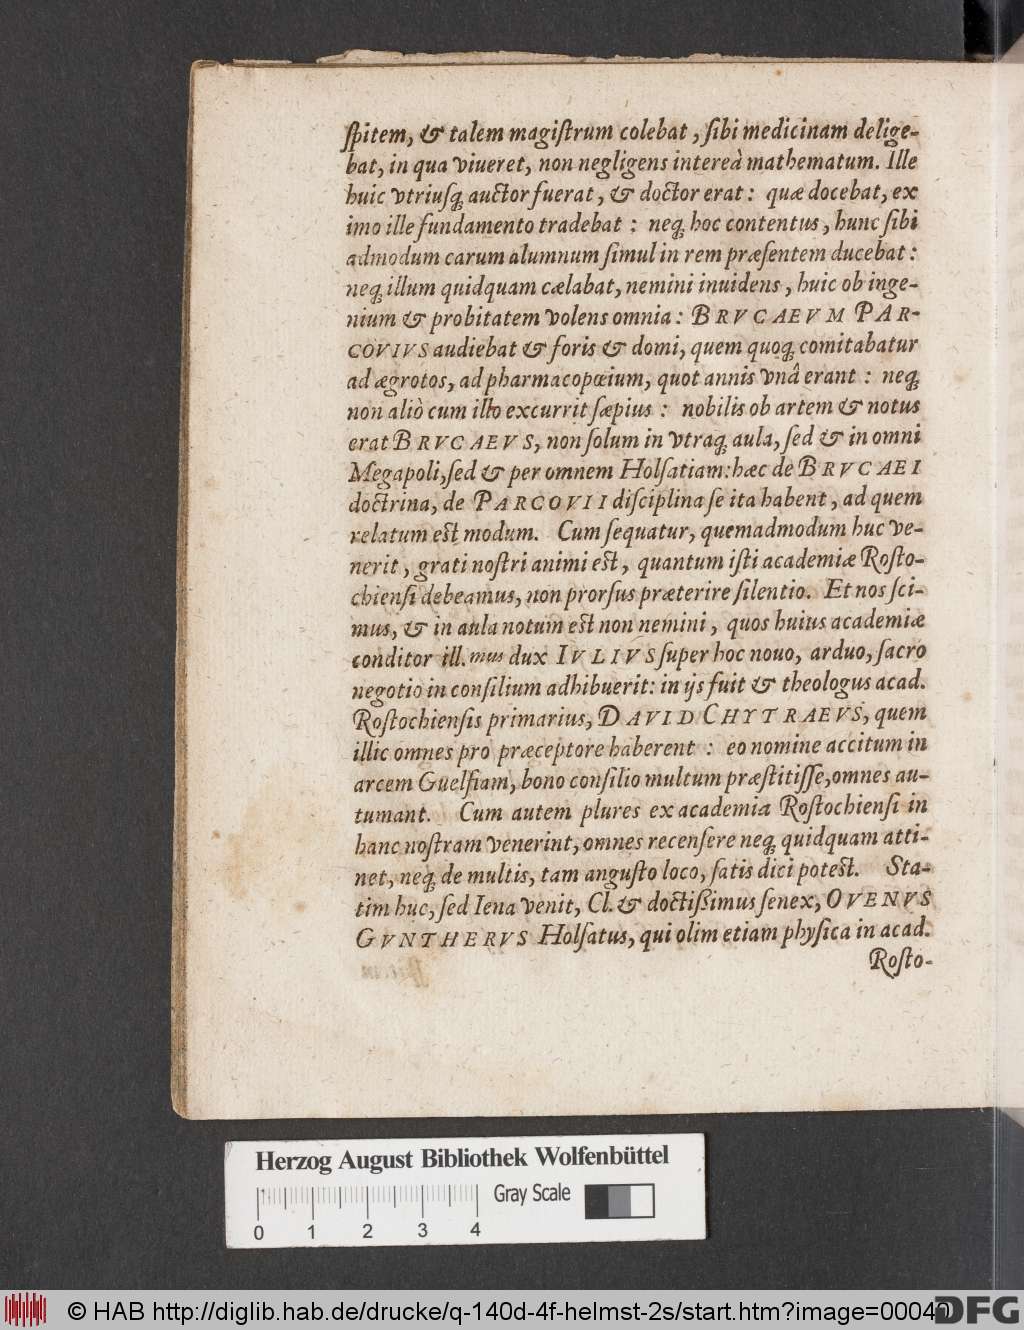 ſpitem, & talem magiſtrum colebat, ſibi medicinam delige-
bat, in qua viueret, non negligens intereà mathematum. Ille
huic vtriuſq́ꝫ auctor fuerat, & doctor erat: quæ docebat, ex
imo ille fundamento tradebat: neq́ꝫ hoc contentus, hunc ſibi
admodum carum alumnum ſimul in rem præſentem ducebat:
neq́ꝫ illum quidquam cælabat, nemini inuidens, huic ob inge-
nium & probitatem volens omnia: BRVCAEVM PAR-
COVIVS audiebat & foris & domi, quem quoq́ꝫ comitabatur
ad ægrotos, ad pharmacopœium, quot annis vnâ erant: neq́ꝫ
non aliò cum illo excurrit ſæpius: nobilis ob artem & notus
erat BRVCAEVS, non ſolum in vtraq́ꝫ aula, ſed & in omni
Megapoli, ſed & per omnem Holſatiam: hæc de BRVCAEI
doctrina, de PARCOVII diſciplina ſe ita habent, ad quem
relatum est modum. Cum ſequatur, quemadmodum huc ve-
nerit, grati noſtri animi est, quantum iſti academiæ Roſto-
chienſi debeamus, non prorſus præterire ſilentio. Et nos ſci-
mus, & in aula notum est non nemini, quos huius academiæ
conditor ill.mus dux IVLIVS ſuper hoc nouo, arduo, ſacro
negotio in conſilium adhibuerit: in ijs fuit & theologus acad.
Roſtochienſis primarius, DAVID CHYTRAEVS, quem
illic omnes pro præceptore haberent: eo nomine accitum in
arcem Guelfiam, bono conſilio multum præſtitiſſe, omnes au-
tumant. Cum autem plures ex academia Roſtochienſi in
hanc noſtram venerint, omnes recenſere neq́ꝫ quidquam atti-
net, neq́ꝫ de multis, tam anguſto loco, ſatis dici potest. Sta-
tim huc, ſed Iena venit, Cl. & doctiſſimus ſenex, OVENVS
GVNTHERVS Holſatus, qui olim etiam phyſica in acad.
Roſto-
Herzog August Bibliothek Wolfenbüttel
Gray Scale
0 1 2 3 4
© HAB http://diglib.hab.de/drucke/q-140d-4f-helmst-2s/start.htm?image=00040
DFG